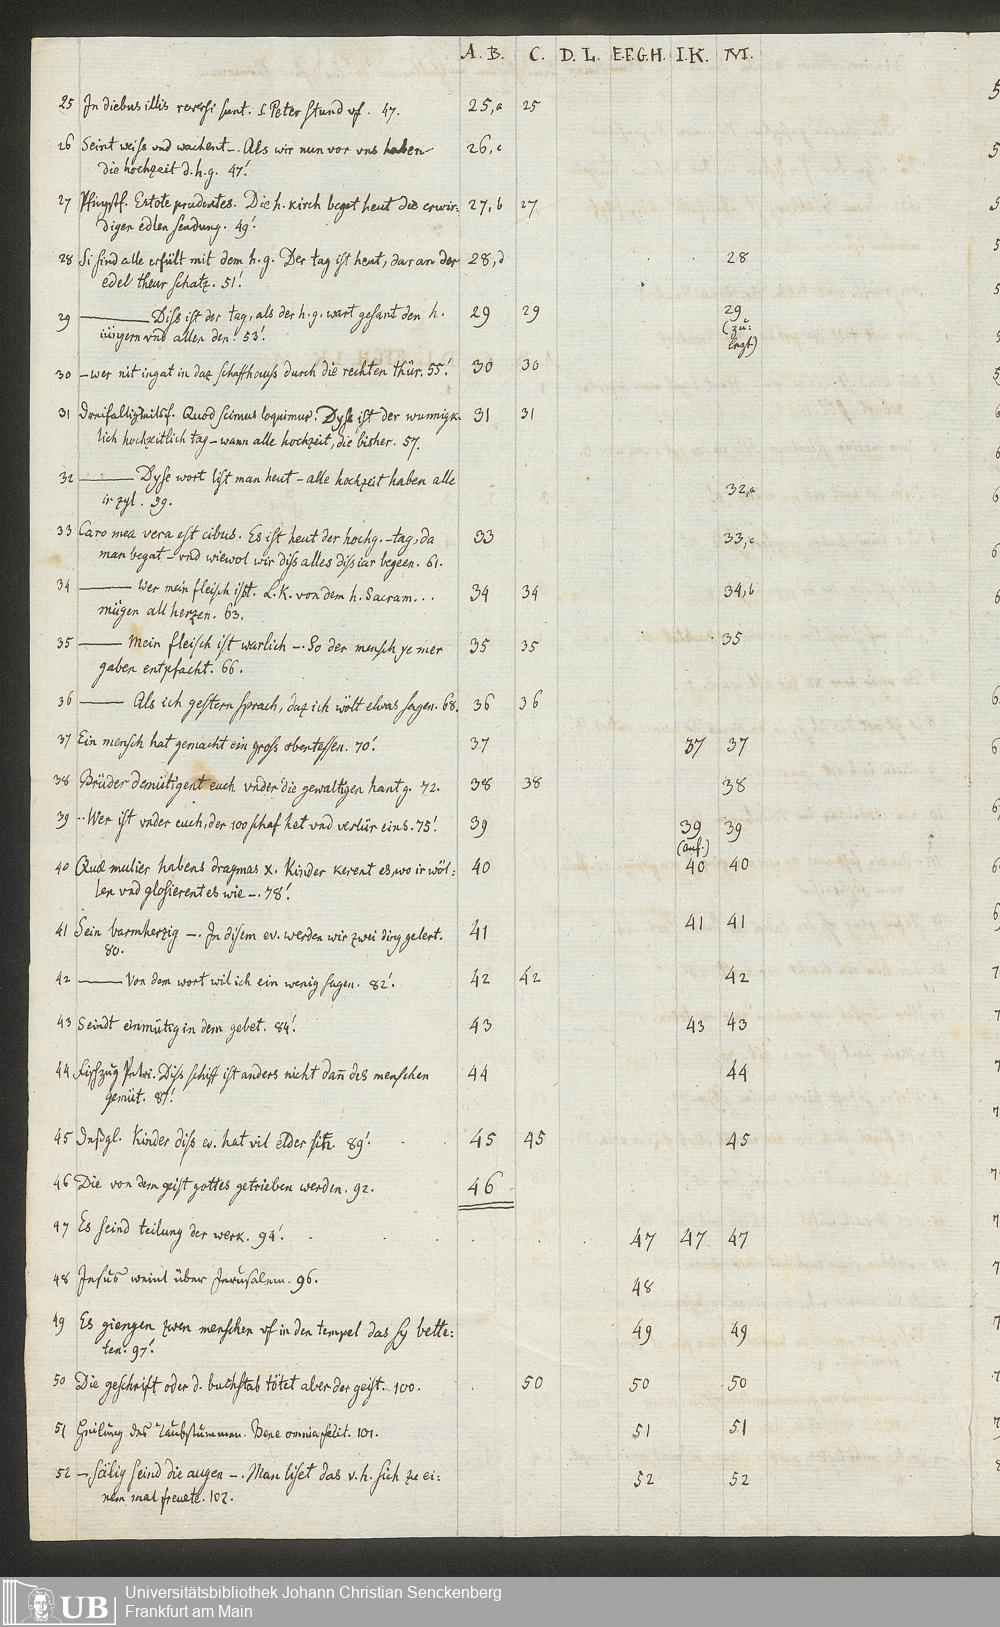 A. B. C. D. L. E.F.G.H. I.K. M.
25 In diebus illis reversi sunt. S. Peter stund vf. 47. 25,a 25
26 Seint weiss vnd wachent –. Als wir nun vor vns haben 26,c
die hochzeit d. h. g. 47!
27 Pfingstf. Estote prudentes. Die h. kirch beget heut die erwir: 27,b 27
digen edlen sendung. 49!
28 Si sind alle erfült mit dem h. g. Der tag ist heut, daran der 28,d 28
edel theur schatz. 51!
29 — Diss ist der tag, als der h. g. wart gesant den h. 29 29 29
iüngern vnd allen den. 53! (zu:
letzt)
30 – wer nit ingat in daz schaffhauss durch die rechten thür. 55! 30 30
31 Dreifaltigkeitsf. Quod scimus loquimur. Dyse ist der wunnigk- 31 31
lich hochzeitlich tag – wann alle hochzeit, die bisher. 57.
32 — Dyse wort list man heut – alle hochzeit haben alle 32,a
ir zyl. 59.
33 Caro mea vera est cibus. Es ist heut der hochg. – tag, da 33 33,c
man begat – vnd wiewol wir diss alles diss iar begeen. 61.
34 — Wer mein fleisch isst. L. K. von dem h. Sacram... 34 34 34,b
mügen all herzen. 63.
35 — Mein fleisch ist warlich –. So der mensch ye mer 35 35 35
gaben entpfacht. 66.
36 — Als ich gestern sprach, daz ich wölt etwas sagen. 68. 36 36
37 Ein mensch hat gemacht ein gross obentessen. 70! 37 37 37
38 Brüder demütigent euch vnder die gewaltigen hant g. 72. 38 38 38
39 .. Wer ist vnder euch, der 100 schaf het vnd verlür eins. 75! 39 39 39
(anf.)
40 Quae mulier habens dragmas x. Kinder kerent es, wo ir wöl: 40 40 40
len vnd glosierent es wie –. 78!
41 Sein barmherzig –. In disem ev. werden wir zwei ding gelert. 41 41 41
80.
42 — Von dem wort wil ich ein wenig sagen. 82! 42 42 42
43 Seindt einmütig in dem gebet. 84! 43 43 43
44 Fischzug Petri. Diss schiff ist anders nicht dan̄ des menschen 44 44
gemüt. 87!
45 Dnsdgl. Kinder diss ev. hat vil edler sitz. 89! 45 45 45
46 Die von dem geist gottes getrieben werden. 92. 46
47 Es seind teilung der werk. 94! 47 47 47
48 Jesus weint über Jerusalem. 96. 48
49 Es giengen zwen menschen vf in den tempel das sy bette: 49 49
ten. 97!
50 Die geschrift oder d. buchstab tötet aber der geist. 100. 50 50 50
51 Heilung des Taubstummen. Bene omnia fecit. 101. 51 51
52 – Sälig seind die augen –. Man liset das v. h. sich zu ei: 52 52
nem mal freuete. 102.
UB
Universitätsbibliothek Johann Christian Senckenberg
Frankfurt am Main